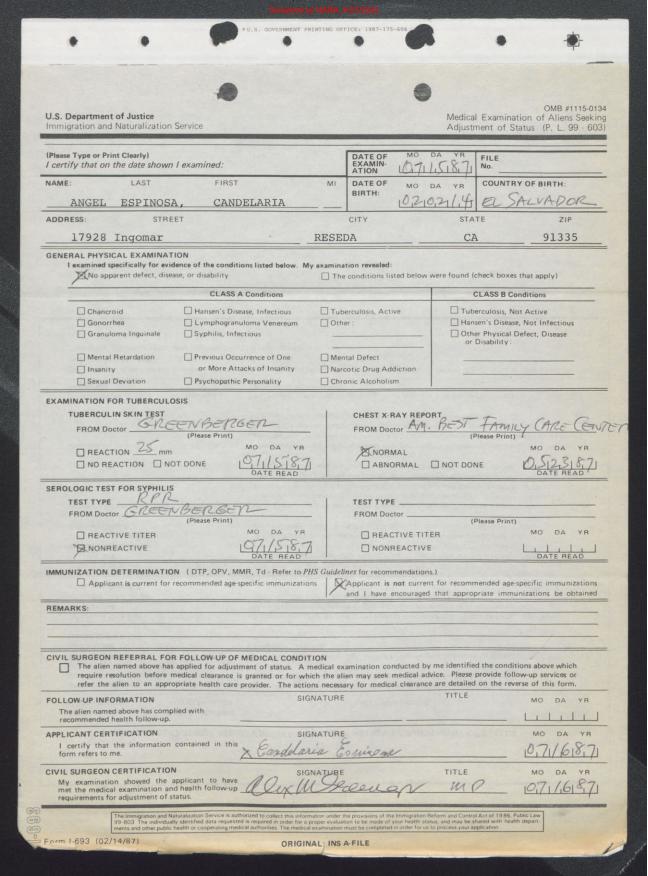 *U.S. GOVERNMENT PRINTING OFFICE: 1987-175-606
OMB #1115-0134
U.S. Department of Justice
Immigration and Naturalization Service
Medical Examination of Aliens Seeking
Adjustment of Status (P. L. 99 - 603)
(Please Type or Print Clearly)
I certify that on the date shown I examined:
DATE OF EXAMINATION MO DA YR 07 15 87
FILE No.
NAME: LAST FIRST MI
ANGEL ESPINOSA, CANDELARIA
DATE OF BIRTH: MO DA YR 02 02 14
COUNTRY OF BIRTH: EL SALVADOR
ADDRESS: STREET CITY STATE ZIP
17928 Ingomar RESEDA CA 91335
GENERAL PHYSICAL EXAMINATION
I examined specifically for evidence of the conditions listed below. My examination revealed:
No apparent defect, disease, or disability The conditions listed below were found (check boxes that apply)
CLASS A Conditions CLASS B Conditions
Chancroid Hansen's Disease, Infectious Tuberculosis, Active Tuberculosis, Not Active
Gonorrhea Lymphogranuloma Venereum Other: Hansen's Disease, Not Infectious
Granuloma Inguinale Syphilis, Infectious Other Physical Defect, Disease
or Disability:
Mental Retardation Previous Occurrence of One Mental Defect
Insanity or More Attacks of Insanity Narcotic Drug Addiction
Sexual Deviation Psychopathic Personality Chronic Alcoholism
EXAMINATION FOR TUBERCULOSIS
TUBERCULIN SKIN TEST CHEST X-RAY REPORT
FROM Doctor GREENBERGER FROM Doctor AM. BEST FAMILY CARE CENTER
(Please Print) (Please Print)
REACTION 25 mm MO DA YR NORMAL MO DA YR
NO REACTION NOT DONE 07 15 87 ABNORMAL NOT DONE 05 23 87
DATE READ DATE READ
SEROLOGIC TEST FOR SYPHILIS
TEST TYPE RPR TEST TYPE
FROM Doctor GREENBERGER FROM Doctor
(Please Print) (Please Print)
REACTIVE TITER MO DA YR REACTIVE TITER MO DA YR
NONREACTIVE 07 15 87 NONREACTIVE
DATE READ DATE READ
IMMUNIZATION DETERMINATION (DTP, OPV, MMR, Td - Refer to PHS Guidelines for recommendations.)
Applicant is current for recommended age-specific immunizations Applicant is not current for recommended age-specific immunizations
and I have encouraged that appropriate immunizations be obtained
REMARKS:
CIVIL SURGEON REFERRAL FOR FOLLOW-UP OF MEDICAL CONDITION
The alien named above has applied for adjustment of status. A medical examination conducted by me identified the conditions above which
require resolution before medical clearance is granted or for which the alien may seek medical advice. Please provide follow-up services or
refer the alien to an appropriate health care provider. The actions necessary for medical clearance are detailed on the reverse of this form.
FOLLOW-UP INFORMATION SIGNATURE TITLE MO DA YR
The alien named above has complied with
recommended health follow-up.
APPLICANT CERTIFICATION SIGNATURE MO DA YR
I certify that the information contained in this
form refers to me. X Candelaria Espinosa 07 16 87
CIVIL SURGEON CERTIFICATION SIGNATURE TITLE MO DA YR
My examination showed the applicant to have
met the medical examination and health follow-up MD 07 16 87
requirements for adjustment of status.
The Immigration and Naturalization Service is authorized to collect this information under the provisions of the Immigration Reform and Control Act of 1986, Public Law
99-603. The individually identified data requested is required in order for a proper evaluation to be made of your health status, and may be shared with health depart-
ments and other public health or cooperating medical authorities. The medical examination must be completed in order for us to process your application.
I-693
Form I-693 (02/14/87) ORIGINAL: INS A-FILE